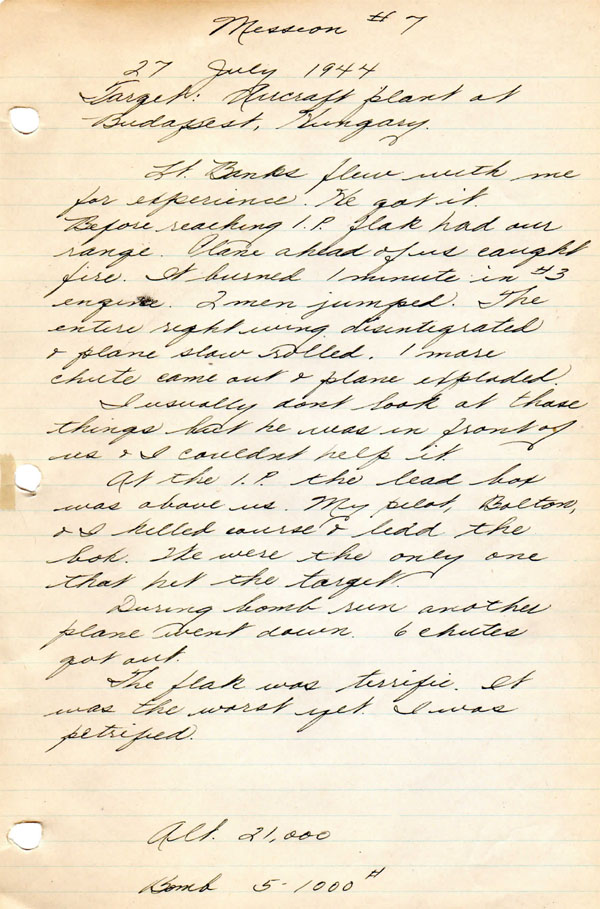 Mission # 7
27 July 1944
Target: Aircraft plant at
Budapest, Hungary.
Lt. Banks flew with me
for experience. He got it.
Before reaching I.P. flak had our
range. Plane ahead of us caught
fire. It burned 1 minute in #3
engine. 2 men jumped. The
entire right wing disintegrated
& plane slow rolled. 1 more
chute came out & plane exploded.
I usually dont look at those
things but he was in front of
us & I couldnt help it.
At the I.P. the lead box
was above us. My pilot, Bolton,
& I killed course & ledd the
box. We were the only one
that hit the target.
During bomb run another
plane went down. 6 chutes
got out.
The flak was terrific. It
was the worst yet. I was
petrified.
Alt. 21,000
Bomb 5-1000#